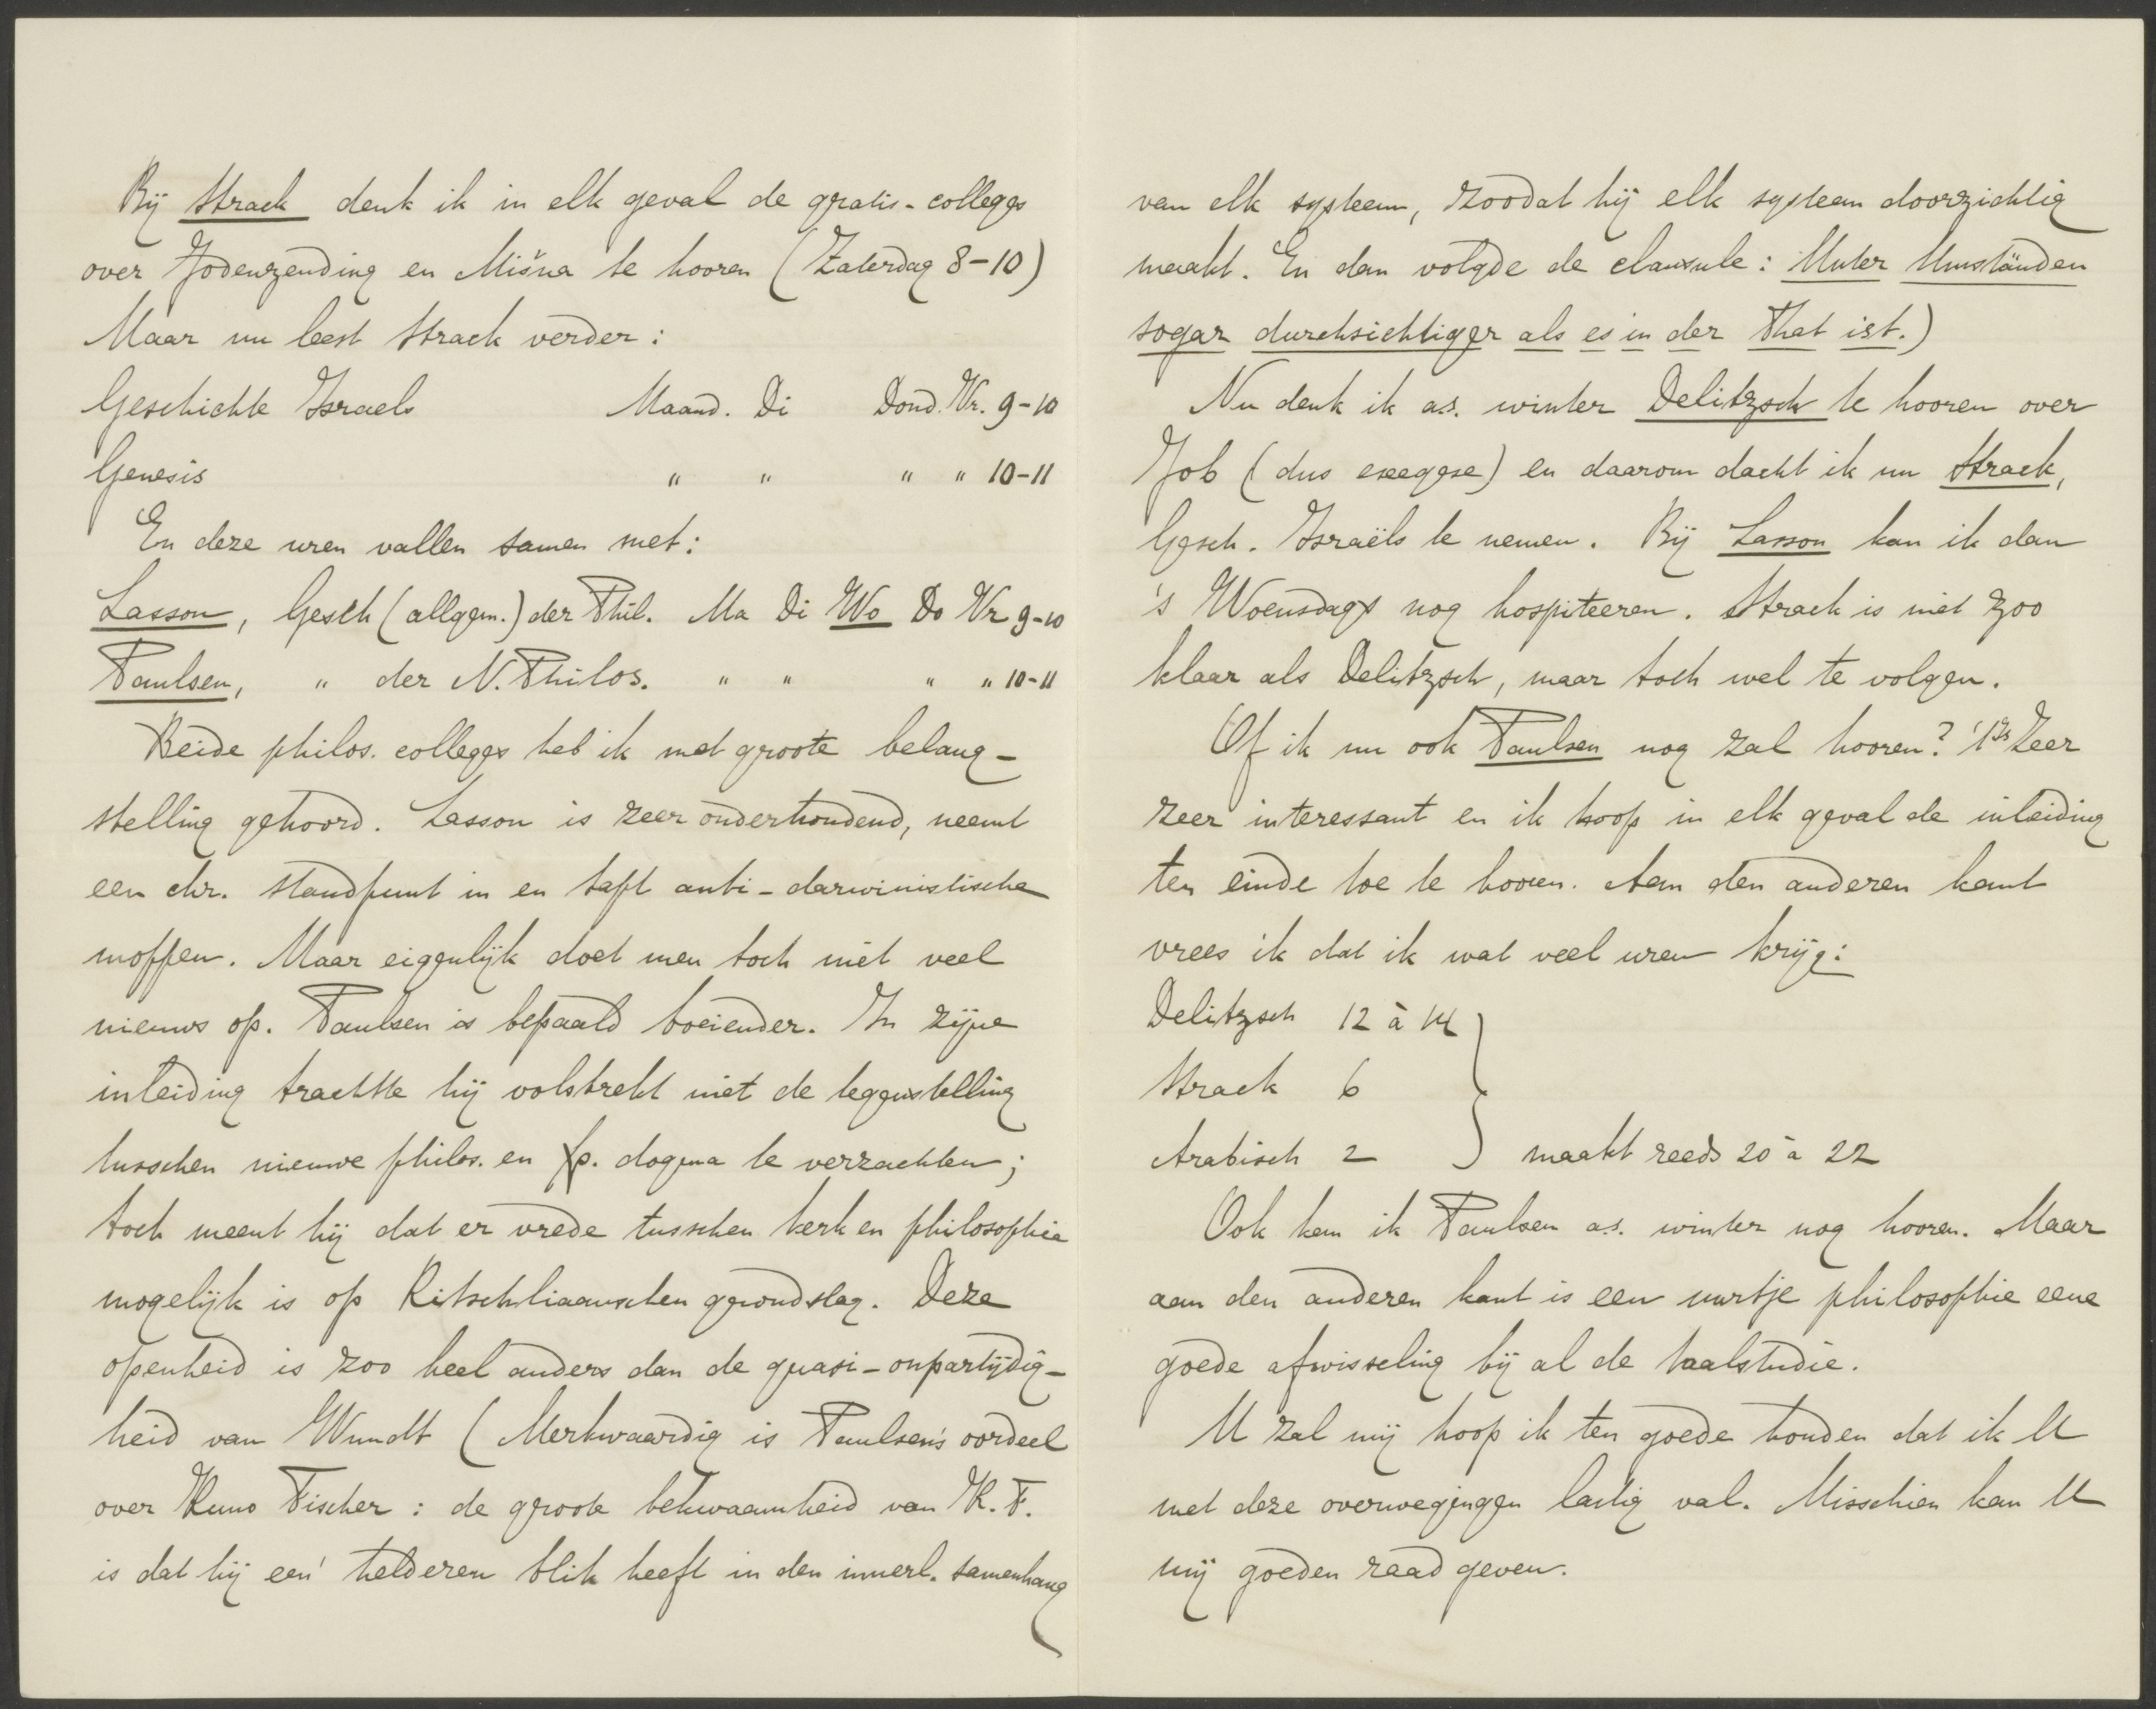 Bij Strack denk ik in elk geval de gratis-colleges
over Jodenzending en Mišna te hooren (Zaterdag 8-10)
Maar nu leest Strack verder:
Geschichte Israels Maand. Di Dond. Vr. 9-10
Genesis " " " " 10-11
En deze uren vallen samen met:
Lasson, Gesch (allgem.) der Phil. Ma Di Wo Do Vr 9-10
Paulsen, " der N. Philos. " " " " 10-11
Beide philos. colleges heb ik met groote belang-
stelling gehoord. Lasson is zeer onderhoudend, neemt
een chr. standpunt in en tapt anti-darwinistische
moppen. Maar eigenlijk doet men toch niet veel
nieuws op. Paulsen is bepaald boeiender. In zijne
inleiding trachtte hij volstrekt niet de tegenstelling
tusschen nieuwe philos. en p. dogma te verzachten;
toch meent hij dat er vrede tusschen kerk en philosophie
mogelijk is op Ritschliaanschen grondslag. Deze
openheid is zoo heel anders dan de quasi-onpartijdig-
heid van Wundt (Merkwaardig is Paulsen's oordeel
over Kuno Fischer: de groote bekwaamheid van K. F.
is dat hij een' helderen blik heeft in den innerl. samenhang
van elk systeem, zoodat hij elk systeem doorzichtig
maakt. En dan volgde de clausule: Unter Umständen
sogar durchsichtiger als es in der That ist.)
Nu denk ik a.s. winter Delitzsch te hooren over
Job (dus exegese) en daarom dacht ik nu Strack,
Gesch. Israëls te nemen. Bij Lasson kan ik dan
's Woensdags nog hospiteeren. Strack is niet zoo
klaar als Delitzsch, maar toch wel te volgen.
Of ik nu ook Paulsen nog zal hooren? 't Is zeer
zeer interessant en ik hoop in elk geval de inleiding
ten einde toe te hooren. Aan den anderen kant
vrees ik dat ik wat veel uren krijg:
Delitzsch 12 à 14
Strack 6
Arabisch 2 } maakt reeds 20 à 22
Ook kan ik Paulsen a.s. winter nog hooren. Maar
aan den anderen kant is een uurtje philosophie eene
goede afwisseling bij al de taalstudie.
U zal mij hoop ik ten goede houden dat ik U
met deze overwegingen lastig val. Misschien kan U
mij goeden raad geven.